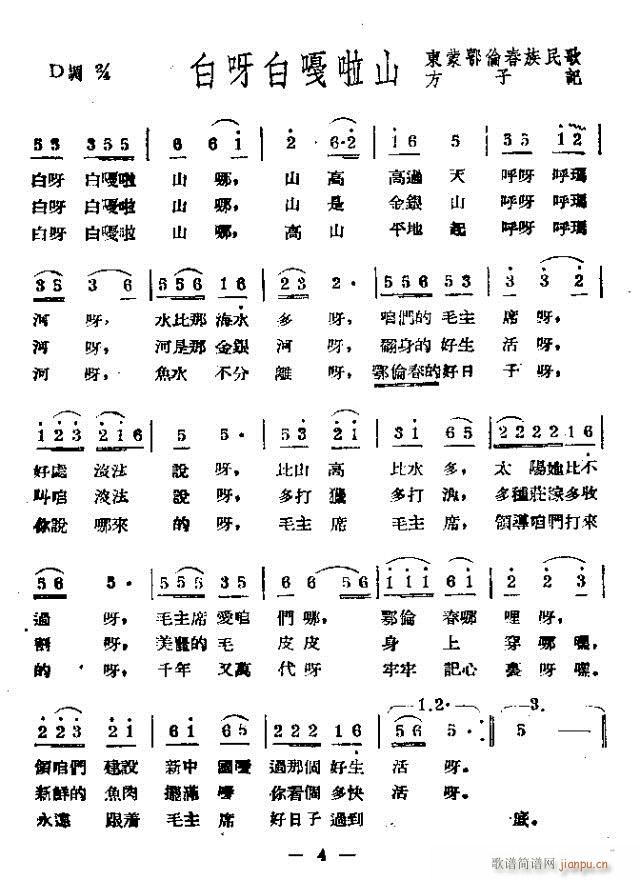 D調 2/4
白呀白嘎啦山
東蒙鄂倫春族民歌
方子記
5 3 3 5 5 6 6 1 2 6·2 1 6 5 5 5 1 2
白呀 白嘎啦 山 哪, 山 高 高過 天 呼呀 呼瑪
白呀 白嘎啦 山 哪, 山 是 金銀 山 呼呀 呼瑪
白呀 白嘎啦 山 哪, 高 山 平地 起 呼呀 呼瑪
3 5 3 6 5 5 5 6 1 6 2 3 2 · 5 5 5 6 5 3 3 2
河 呀, 水比那 海水 多 呀, 咱們的 毛主 席 呀,
河 呀, 河是那 金銀 河 呀, 翻身的 好生 活 呀,
河 呀, 魚水 不分 離 呀, 鄂倫春的 好日 子 呀,
1 2 3 2 1 6 5 5 · 5 3 2 1 3 1 6 5 2 2 2 2 2 1 6
好處 沒法 說 呀, 比山 高 比水 多, 太 陽她比不
叫咱 沒法 說 呀, 多打 獵 多打 漁, 多種莊
你說 哪來 的 呀, 毛主 席 毛主 席, 領導咱們打來
5 6 5 · 5 5 5 3 5 6 6 5 6 1 1 1 6 1 2 2 3
過 呀, 毛主席 愛咱 們 哪, 鄂倫 春哪 哩 呀,
割 呀, 美麗的 毛 皮 皮 身 上 穿 哪 嘿,
的 呀, 千年 又萬 代 呀 牢牢 記心 裏 呀 嘿。
1.2. 3.
2 2 3 2 1 6 1 6 5 2 2 2 1 6 5 6 5 · 5 —
領咱們 建設 新中 國嘎 過那個 好生 活 呀。
新鮮的 魚肉 擺滿 嘎 你看個 多快 活 呀。
永遠 跟着 毛主 席 好日子 過到 底。
— 4 —
歌谱简谱网
jianpu.cn